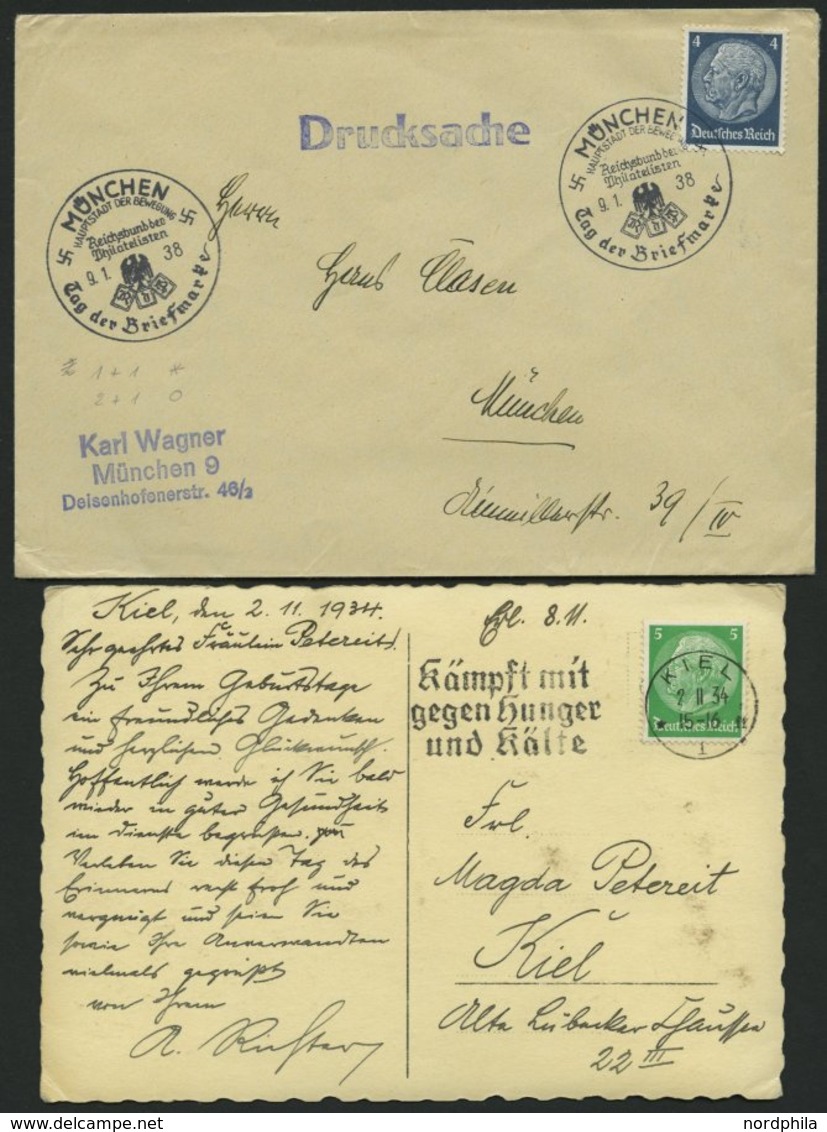 4 4
Deutsches Reich
Drucksache
MÜNCHEN
HAUPTSTADT DER BEWEGUNG
Reichsbund der
Philatelisten
9.1. 38
Tag der Briefmarke
MÜNCHEN
HAUPTSTADT DER BEWEGUNG
Reichsbund der
Philatelisten
9.1. 38
Tag der Briefmarke
Herrn
Hans Clasen
München
39/IV
1+1 *
2+1 O
Karl Wagner
München 9
Deisenhofenerstr. 46/2
Kiel, den 2.11.1934.
Sehr geehrtes Fräulein Petereit!
Zu Ihrem Geburtstage
ein freundliches Gedenken
und herzlichen Glückwunsch.
Hoffentlich werde ich Sie bald
wieder in guter Gesundheit
im Dienste begrüßen.
Verleben Sie diesen Tag des
Erinnerns recht froh und
vergnügt und seien Sie
sowie Ihre Anverwandten
vielmals gegrüßt
von Ihrem
A. Richter
8.11.
Kämpft mit
gegen Hunger
und Kälte
5 5
Deutsches Reich
KIEL
2 11 34
15-16
1
Frl.
Magda Petereit
Kiel
Alte Lübecker Chaussee
22 III
www.nordphila.com